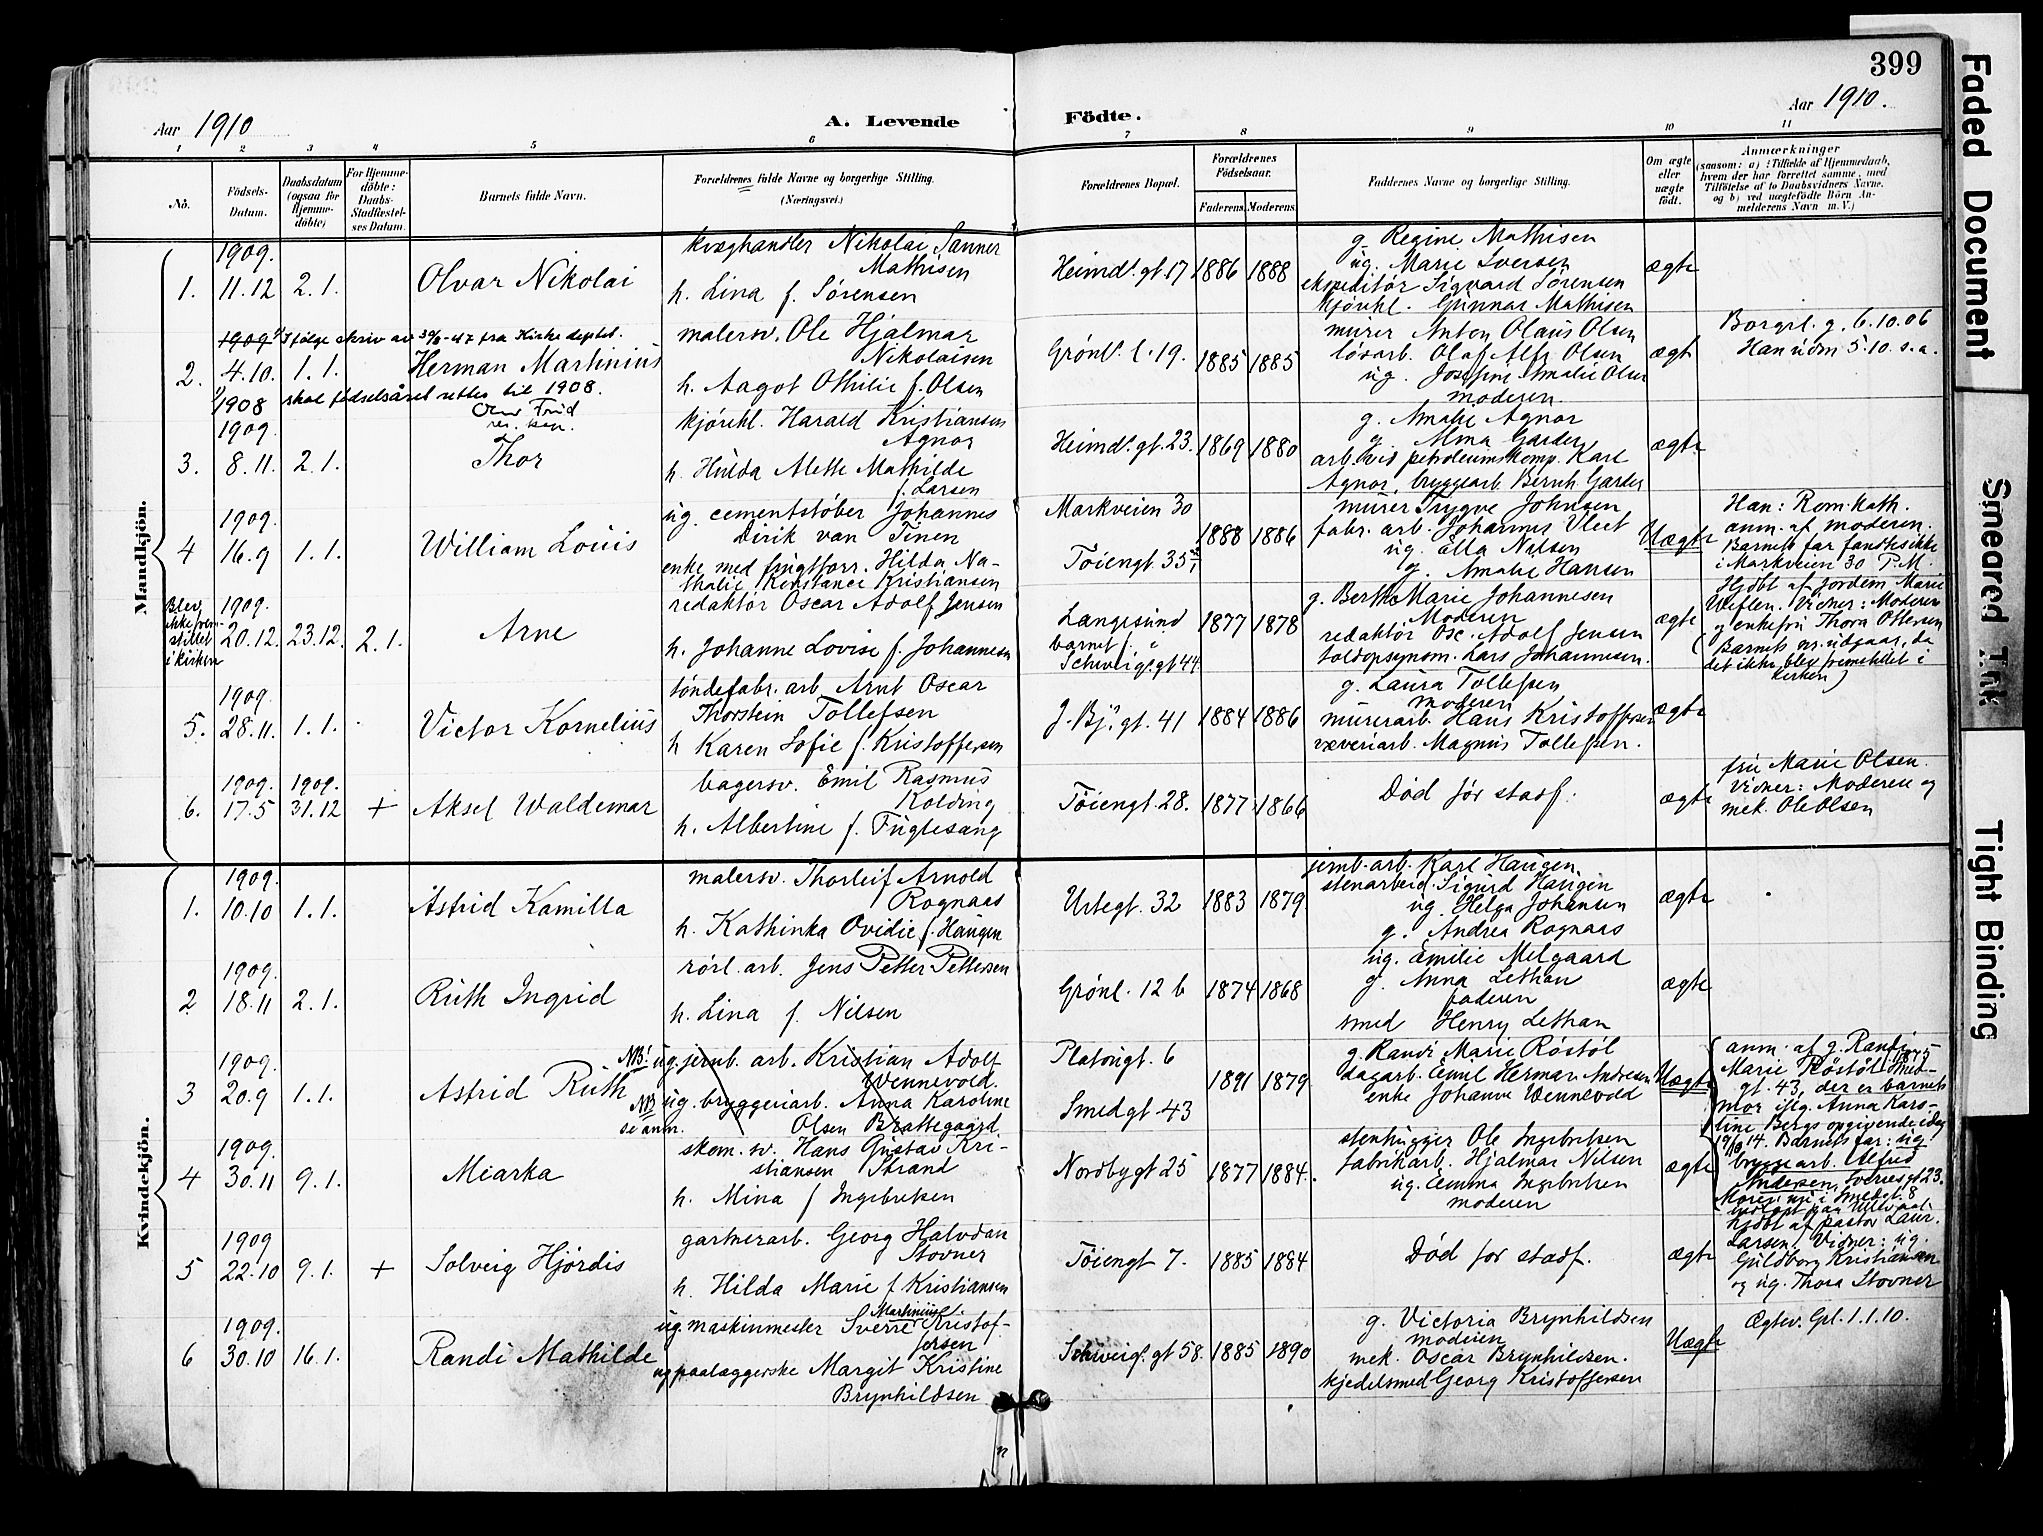 399
Aar 1910
A. Levende Födte.
Aar 1910.
1 2 3 4 5 6 7 8 9 10 11
No.
Födsels-
Datum.
Daabsdatum
(ogsaa for
Hjemme-
döbte)
For Hjemme-
döbte:
Daabs-
Stadfæstel-
ses Datum.
Barnets fulde Navn.
Forældrenes fulde Navne og borgerlige Stilling.
(Næringsvei.)
Forældrenes Bopæl.
Forældrenes
Födselsaar.
Faderens Moderens.
Faddernes Navne og borgerlige Stilling.
Om ægte
eller
uægte
født.
Anmærkninger
(saasom: a) i Tilfælde af Hjemmedaab,
hvem der har forrettet samme, med
Tilföielse af to Daabsvidners Navne,
og b) ved uægtefödte Börn An-
melderens Navn m. V.)
Mandkjön.
1909.
1. 11.12 2.1.
Olvar Nikolai
kvæghandler Nikolai Sanner
Mathisen
h. Lina f. Sørensen
Heimd!. gt. 17 1886 1888
g. Regine Mathisen
ug. Marie Iversen
ekspeditør Sigvard Sørensen
kjørekl. Gunnar Mathisen
ægte
1909 Ifølge skriv av 30/9-47 fra Kirkedeptet.
2. 4.10. 1.1.
Herman Martinius
1908 skal fødselsåret rettes til 1908.
res. kap.
malersv. Ole Hjalmar
Nikolaisen
h. Aagot Othilie f. Olsen
Grønl. l. 19. 1885 1885
murer Anton Olaus Olsen
løsarb. Olaf Alfr. Olsen
ug. Josefine Amalie Olsen
moderen.
ægte
Borgerl. g. 6.10.06
Han udm 5.10. s.a.
1909.
3. 8.11. 2.1.
Thor
kjørekl. Harald Kristiansen
Agnor
h. Hulda Alette Mathilde
f. Larsen
Heimd!. gt. 23. 1869 1880
g. Amalie Agnor
g. Alma Garder
arb. ved petroleumskomp. Karl
Agnor, bryggearb. Bernh. Garder
ægte
1909.
4 16.9 1.1.
William Louis
ug. cementstøber Johannes
Dirik van Tinen
enke med frugtforr. Hilda Na-
thalie Konstance Kristiansen
Markveien 30
Tøiengt. 35
1888 1886
murer Trygve Johnsen
fabr. arb. Johannes Vleet
ug. Ella Nilsen
g. Amalie Hansen
Uægte
Han: Rom. kath.
anm. af moderen.
Barnets far fandtes ikke
i Markveien 30 T.M.
Blev
ikke frem-
stillet
i kirken
1909.
20.12. 23.12. 2.1.
Arne
redaktør Oscar Adolf Jensen
h. Johanne Lovise f. Johannesen
Langesund
barnet f. i
Schweig!. gt 44
1877 1878
g. Berthe Marie Johannesen
Moderen
redaktør Osc. Adolf Jensen
toldopsynsm. Lars Johannesen.
ægte
Hjdbt af Jordem. Marie
Weflen. Vidner: Moderen
og enkefru Thora Ottersen
(Barnets nr. udgaar, da
det ikke blev fremstillet i
kirken)
1909.
5. 28.11. 1.1.
Victor Kornelius
tøndefabr. arb. Arnt Oscar
Thorstein Tollefsen
h Karen Sofie f. Kristoffersen
J. Bj. gt. 41 1884 1886
g. Laura Tollefsen
moderen
murerarb. Hans Kristoffersen
væveriarb. Magnus Tollefsen.
ægte
1909. 1909.
6. 17.5 31.12 +
Aksel Waldemar
bagersv. Emil Rasmus
Kolding
h. Albertine f. Fuglesang
Tøiengt. 28. 1877 1866
Død før stadf.
ægte
fru Marie Olsen.
Vidner: Moderen og
mek. Ole Olsen
Kvindekjön.
1909.
1. 10.10 1.1.
Astrid Kamilla
malersv. Thorleif Arnold
Rognaas
h. Kathinka Ovidie f. Haugen
Urtegt. 32 1883 1879
jernb. arb. Karl Haugen,
stenarbeid. Sigurd Haugen
ug. Helga Johansen
g. Andrea Rognaas
ægte
1909.
2 18.11 2.1.
Ruth Ingrid
rørl. arb. Jens Petter Pettersen
h. Lina f. Nilsen
Grønl. 12 b 1874 1868
ug. Emilie Melgaard
g. Anna Lethan
faderen
smed Henry Lethan
ægte
1909.
3 20.9 1.1.
Astrid Ruth
NB! ug. jernb. arb. Kristian Adolf
Wennevold.
NB ug. bryggeriarb. Anna Karoline
se anm. Olsen Brattegaard
Platøugt. 6
Smedgt. 43
1891 1879
g. Randi Marie Røstøl
dagarb. Emil Herman Andresen
enke Johanne Wennevold
Uægte
anm. af g. Randi
Marie Røstøl Smed-
gt. 43, der er barnets
mor iflg. Anna Karo-
line Bergs opgivende idag
19/10 14. Barnets far: ug
bryggearb. Alfred
Andersen, Sverresgt 23.
1909.
4 30.11 9.1.
Mearka
skom. sv. Hans Gustav Kri-
stiansen Strand
h. Mina f Ingebretsen
Nordbygt 25 1877 1884.
stenhugger Ole Ingebretsen
fabrikarb. Hjalmar Nilsen
ug. Emma Ingebretsen
moderen
ægte
1909
5 22.10 9.1. +
Solveig Hjørdis
gartnerarb. Georg Halvdan
Stovner
h. Hilda Marie f. Kristiansen
Tøiengt 7. 1885 1884
Død før stadf.
ægte
hjdbt af pastor Laur.
Larsen. Vidner: ug.
Guldborg Kristiansen
og ug. Thora Stovner
1909.
6 30.10 16.1.
Randi Mathilde
ug. maskinmester Sverre Martinius Kristof-
fersen
ug paalæggerske Margit Kristine
Brynhildsen
Schweig!. gt 58. 1885 1890
g. Victoria Brynhildsen
moderen
mek. Oscar Brynhildsen.
kjedelsmed Georg Kristoffersen
Uægte
Ægtev. Gpl. 1.1.10.
Faded Document
Smeared Ink
Tight Binding